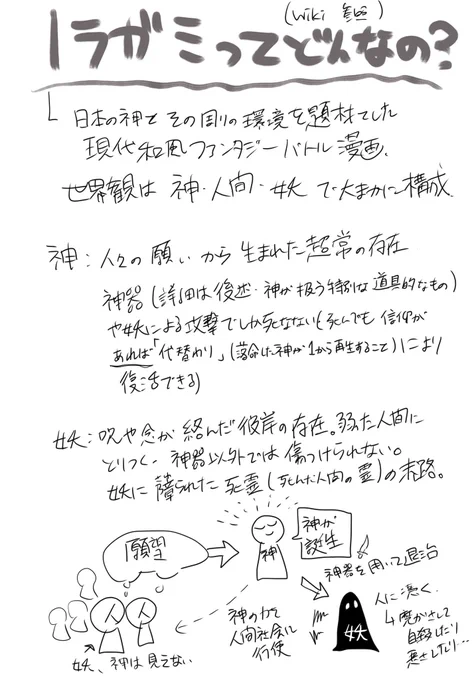 (wiki 参照)
ノラガミってどんなの?
日本の神とその周りの環境を題材にした
現代和風ファンタジーバトル漫画。
世界観は 神・人間・妖 で大まかに構成
神:人々の願いから生まれた超常の存在
神器(詳細は後述・神が扱う特別な道具的なもの)
や妖による攻撃でしか死なない(死んでも信仰が
あれば「代替わり」(落命した神が1から再生すること)により
復活できる)
妖:呪や念が絡んだ彼岸の存在。弱った人間に
とりつく。神器以外では傷つけられない。
妖に障られた死霊(死んだ人間の霊)の末路。
願望
神
神が
誕生
神器を用いて退治
人
人
妖、神は見えない
神の力を
人間社会に
行使
妖
人に憑く
↳魔がさして
自殺したり
悪さしたり…